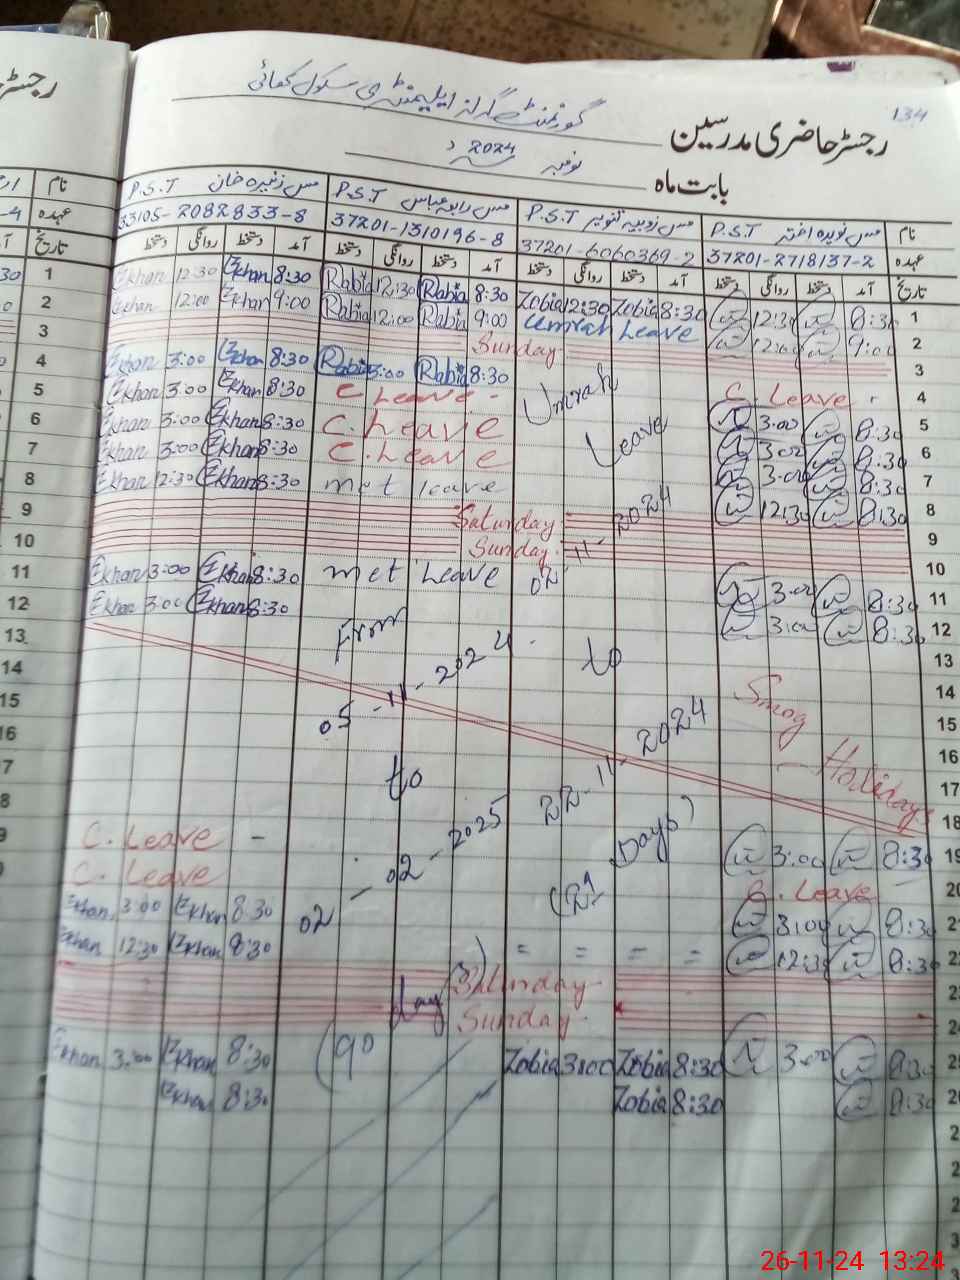 134
رجسٹر حاضری مدرسین گورنمنٹ گرلز ایلیمنٹری سکول
بابت ماہ نومبر 2024ء
نام P.S.T P.S.T مس رابعہ عباس P.S.T P.S.T
عہدہ 37201-2718137-2 37201-6060369-2 37201-1310196-8 33105-2082833-8
تاریخ آمد دستخط روانگی دستخط آمد دستخط روانگی دستخط آمد دستخط روانگی دستخط آمد دستخط روانگی دستخط
1 Ekhan 12:30 Ekhan 8:30 Rabia 12:30 Rabia 8:30 Zobia 12:30 Zobia 8:30 12:30 8:30 1
2 Ekhan 12:00 Ekhan 9:00 Rabia 12:00 Rabia 9:00 Umrah Leave 12:00 9:00 2
3 Sunday 3
4 Ekhan 3:00 Ekhan 8:30 Rabia 3:00 Rabia 8:30 Umrah C. Leave 4
5 Ekhan 3:00 Ekhan 8:30 C Leave - 3:00 8:30 5
6 Ekhan 3:00 Ekhan 8:30 C. Leave Leave 3:00 8:30 6
7 Ekhan 3:00 Ekhan 8:30 C. Leave 3:00 8:30 7
8 Ekhan 12:30 Ekhan 8:30 met leave 12:30 8:30 8
9 Saturday 9
10 Sunday 10
11 Ekhan 3:00 Ekhan 8:30 met Leave 02-11-2024 3:00 8:30 11
12 Ekhan 3:00 Ekhan 8:30 3:00 8:30 12
13 From to 13
14 05-11-2024 Smog 14
15 15
16 16
17 to 22-11-2024 Holidays 17
18 18
19 C. Leave - Days) 3:00 8:30 19
C. Leave 02-02-2025 (21 C. Leave 20
Ekhan 3:00 Ekhan 8:30 3:00 8:30 21
Ekhan 12:30 Ekhan 8:30 = = = = 12:30 8:30 22
Saturday 23
day Sunday 24
Ekhan 3:00 Ekhan 8:30 (90 Zobia 3:00 Zobia 8:30 3:00 8:30 25
Ekhan 8:30 Zobia 8:30 8:30 26
26-11-24 13:24